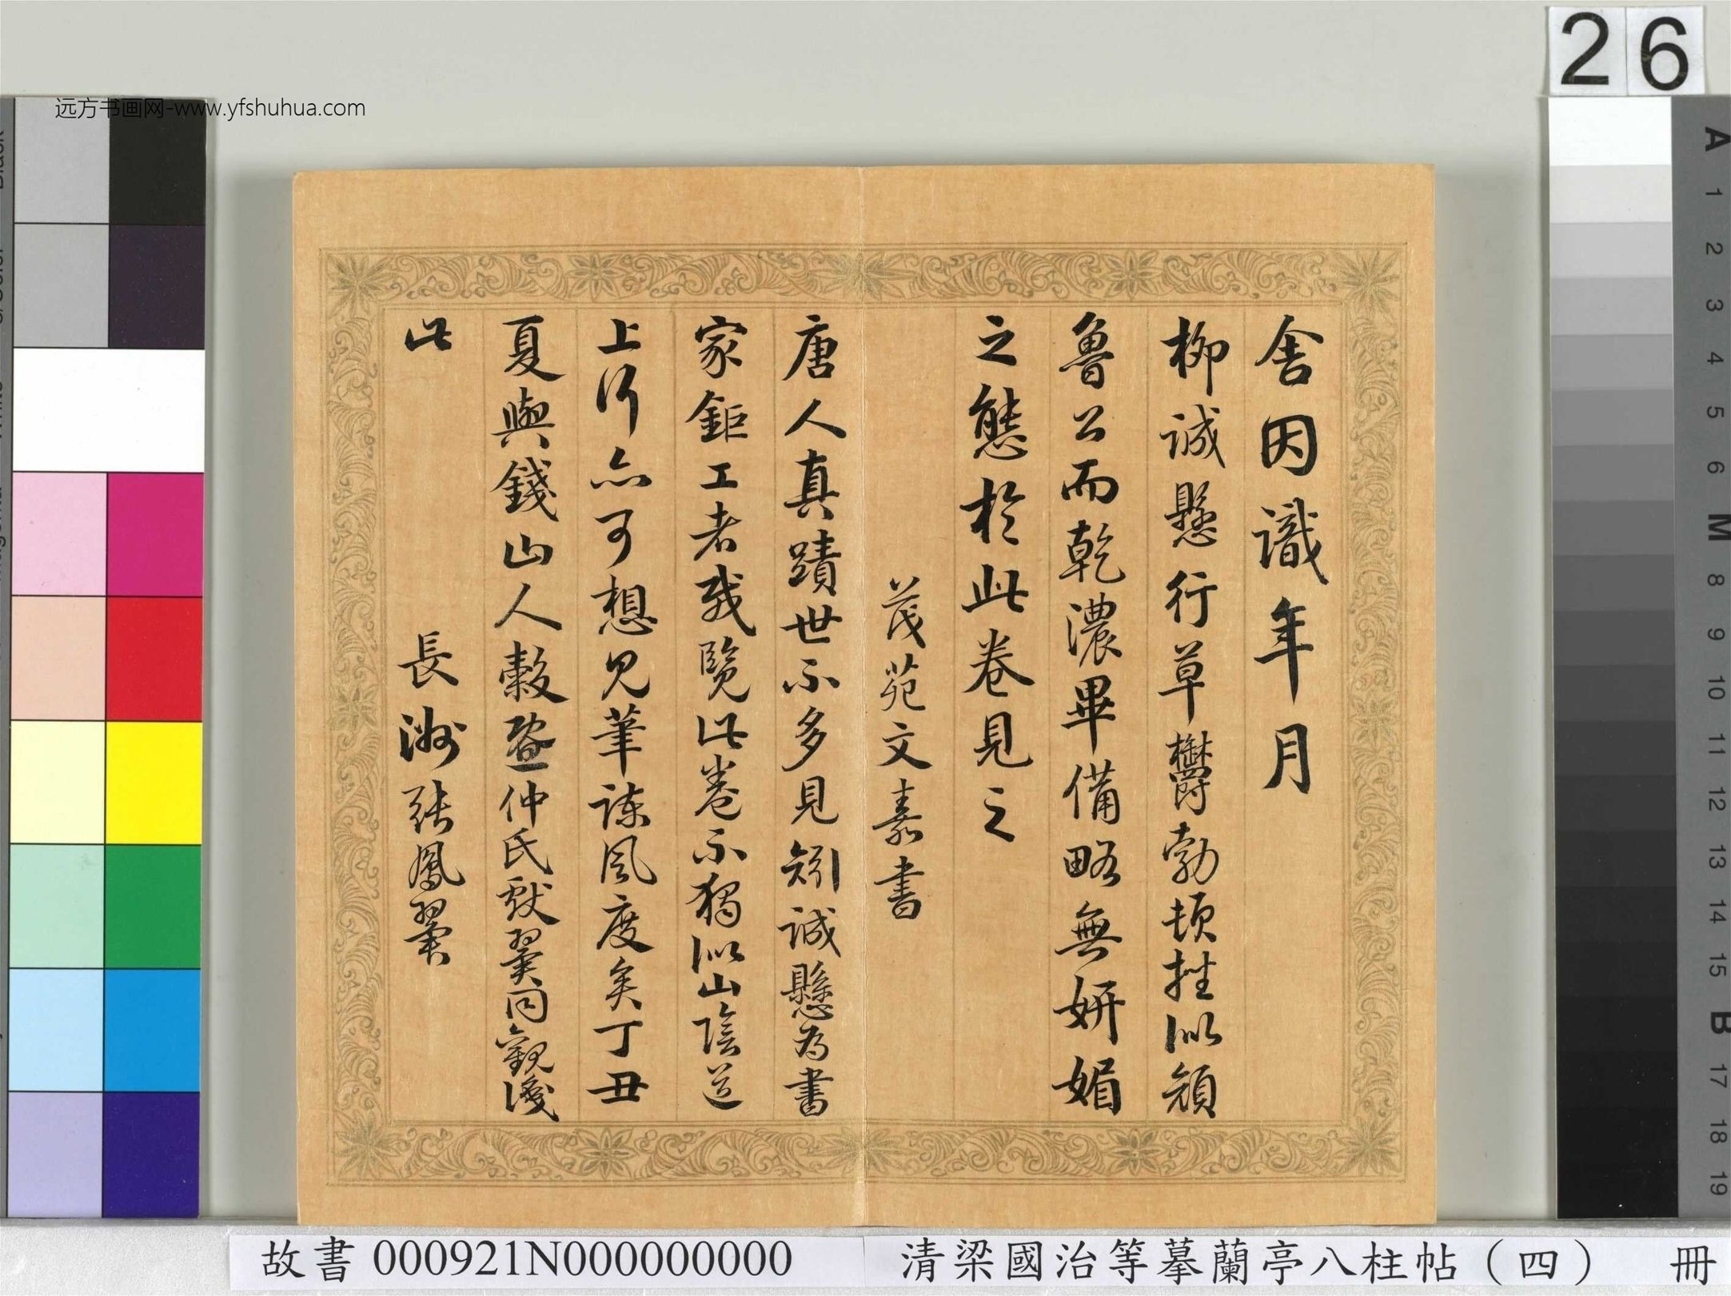 远方书画网-www.yfshuhua.com
26
舍因識年月
柳誠懸行草鬱勃頓挫似顏
魯公而乾濃畢備略無妍媚
之態於此卷見之
茂苑文嘉書
唐人真蹟世不多見矧誠懸為書
家鉅工者哉覽此卷不獨似山陰道
上行亦可想見筆諫風度矣丁丑
夏與錢山人穀
仲氏獻翼同觀識
此
長洲張鳳翼
A 1 2 3 4 5 6 M 8 9 10 11 12 13 14 15 B 17 18 19
故書 000921N000000000
清梁國治等摹蘭亭八柱帖（四） 冊